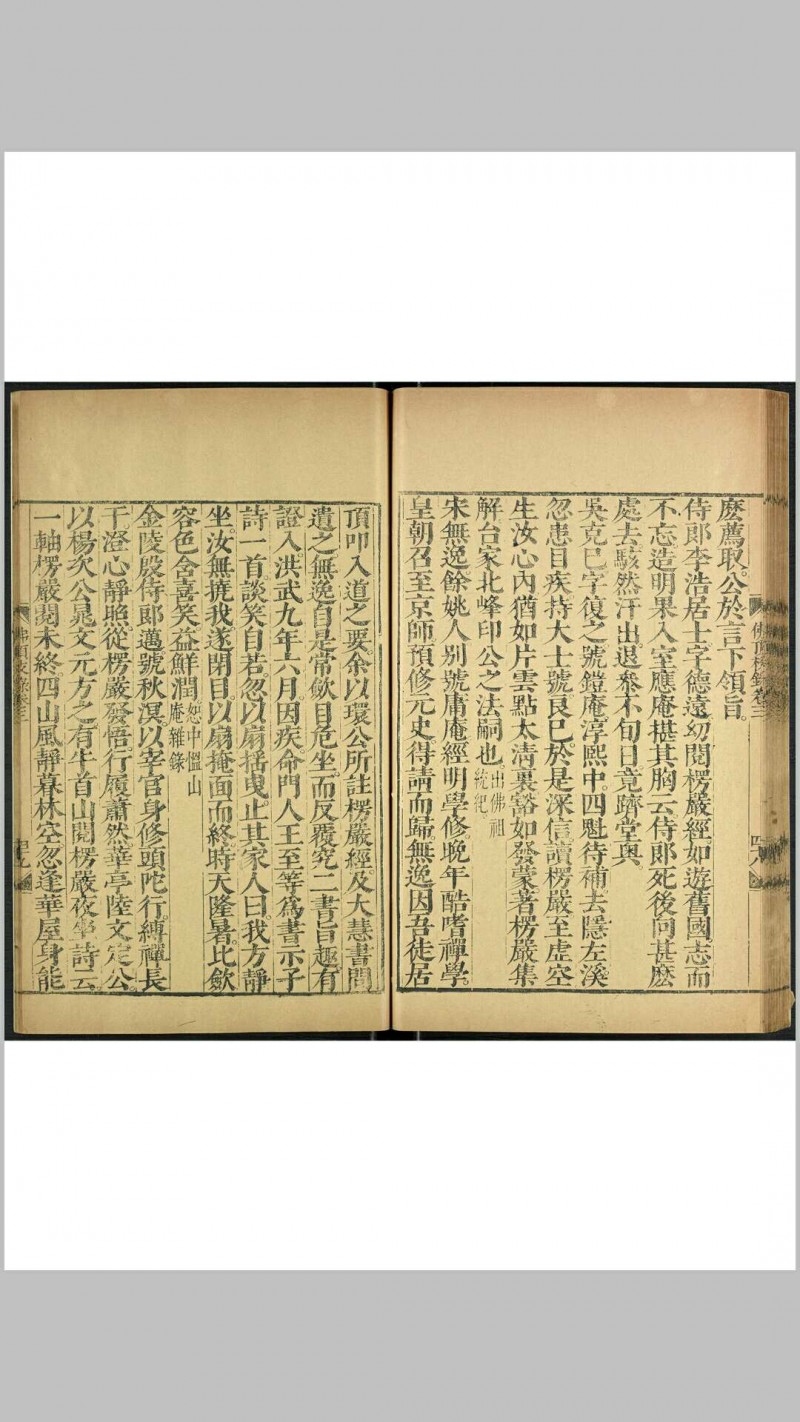 麽薦取公於言下領旨
侍郎李浩居士字德遠幼閱楞嚴經如遊舊國志而
不忘造明果入室應庵揕其胸云侍郎死後向甚麽
處去駭然汗出退參不旬日竟躋堂奧
吳克巳字復之號鎧庵淳熙中四魁待補去隱左溪
忽患目疾持大士號良巳於是深信讀楞嚴至虛空
生汝心內猶如片雲點太清裏豁如發蒙著楞嚴集
解台家北峰印公之法嗣也出佛祖統紀
宋無逸餘姚人别號庸庵經明學修晚年酷嗜禪學
皇朝召至京師預修元史得請而歸無逸因吾徒居
頂叩入道之要余以環公所註楞嚴經及大慧書問
遺之無逸自是常歛目危坐而反覆究二書旨趣有
證入洪武九年六月因疾命門人王至等爲書示子
詩一首談笑自若忽以扇揺曳止其家人曰我方靜
坐汝無撓我遂閉目以扇掩面而終時天隆暑比歛
容色含喜笑益鮮潤恕中慍山庵雜錄
金陵殷侍郎邁號秋溟以宰官身修頭陀行縛禪長
干澄心靜照從楞嚴發悟行履蕭然華亭陸文定公
以楊次公晁文元方之有牛首山閱楞嚴夜坐詩云
一軸楞嚴閱未終四山風靜暮林空忽逢華屋身能